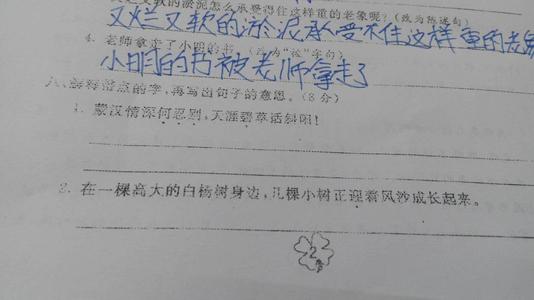 又软的淤泥怎么承受得住这样重的老象呢?(改为陈述句)
又烂又软的淤泥承受不住这样重的老象
4. 老师拿走了小明的书。(改为“被”字句)
小明的书被老师拿走了
八、解释带点的字,再写出句子的意思。(8分)
1. 蒙汉情深何忍别,天涯碧草话斜阳!
2. 在一棵高大的白杨树身边,几棵小树正迎着风沙成长起来。
2